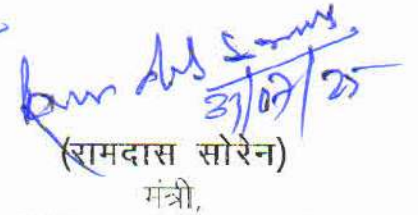 31/07/25
(रामदास सोरेन)
मंत्री,